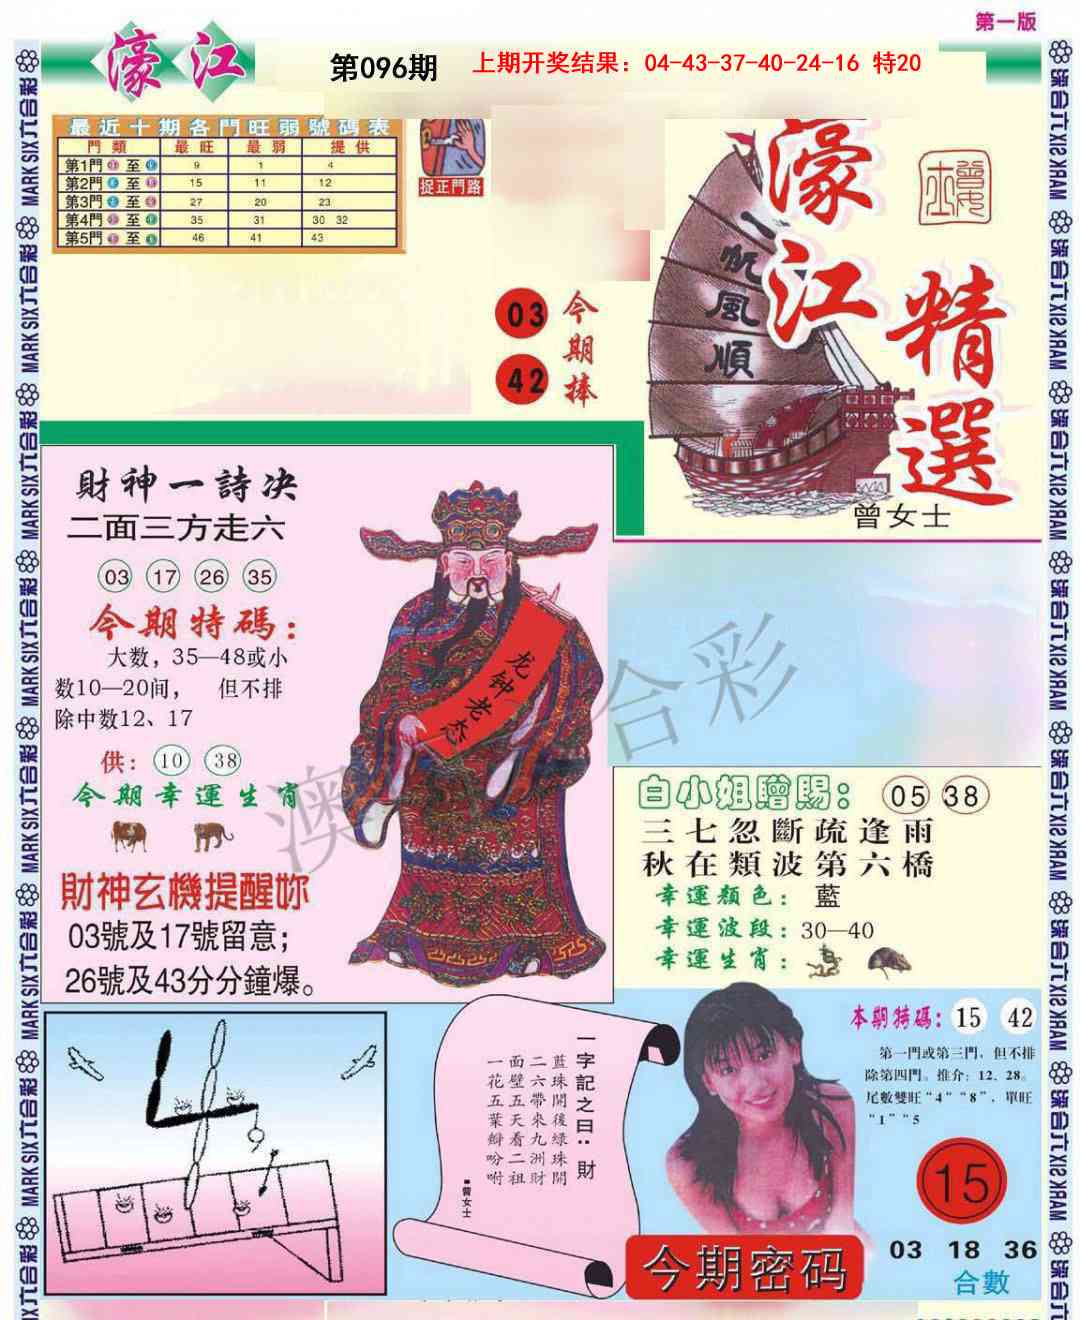 第一版
濠江
第096期
上期开奖结果：04-43-37-40-24-16 特20
最近十期各門旺弱號碼表
門類 最旺 最弱 提供
第1門 至 9 1 4
第2門 至 15 11 12
第3門 至 27 20 23
第4門 至 35 31 30 32
第5門 至 46 41 43
捉正門路
03
42
今期捧
一帆風順
濠江
精選
曾女士
財神一詩决
二面三方走六
03 17 26 35
今期特碼：
大数，35—48或小
数10—20间， 但不排
除中数12、17
供：10 38
今期幸運生肖
財神玄機提醒妳
03號及17號留意；
26號及43分分鐘爆。
龙钟老态
澳 合彩
白小姐贈賜： 05 38
三七忽斷疏逢雨
秋在類波第六橋
幸運顏色：藍
幸運波段：30—40
幸運生肖：
一字記之曰：財
藍珠開後綠珠開
二六帶來九洲財
面壁五天看二祖
一花五葉瓣吩咐
曾女士
本期特碼：15 42
第一門或第三門，但不排
除第四門。推介：12、28。
尾數雙旺“4”“8”，單旺
“1”“5
15
今期密码
03 18 36
合數
MARK SIX六合彩